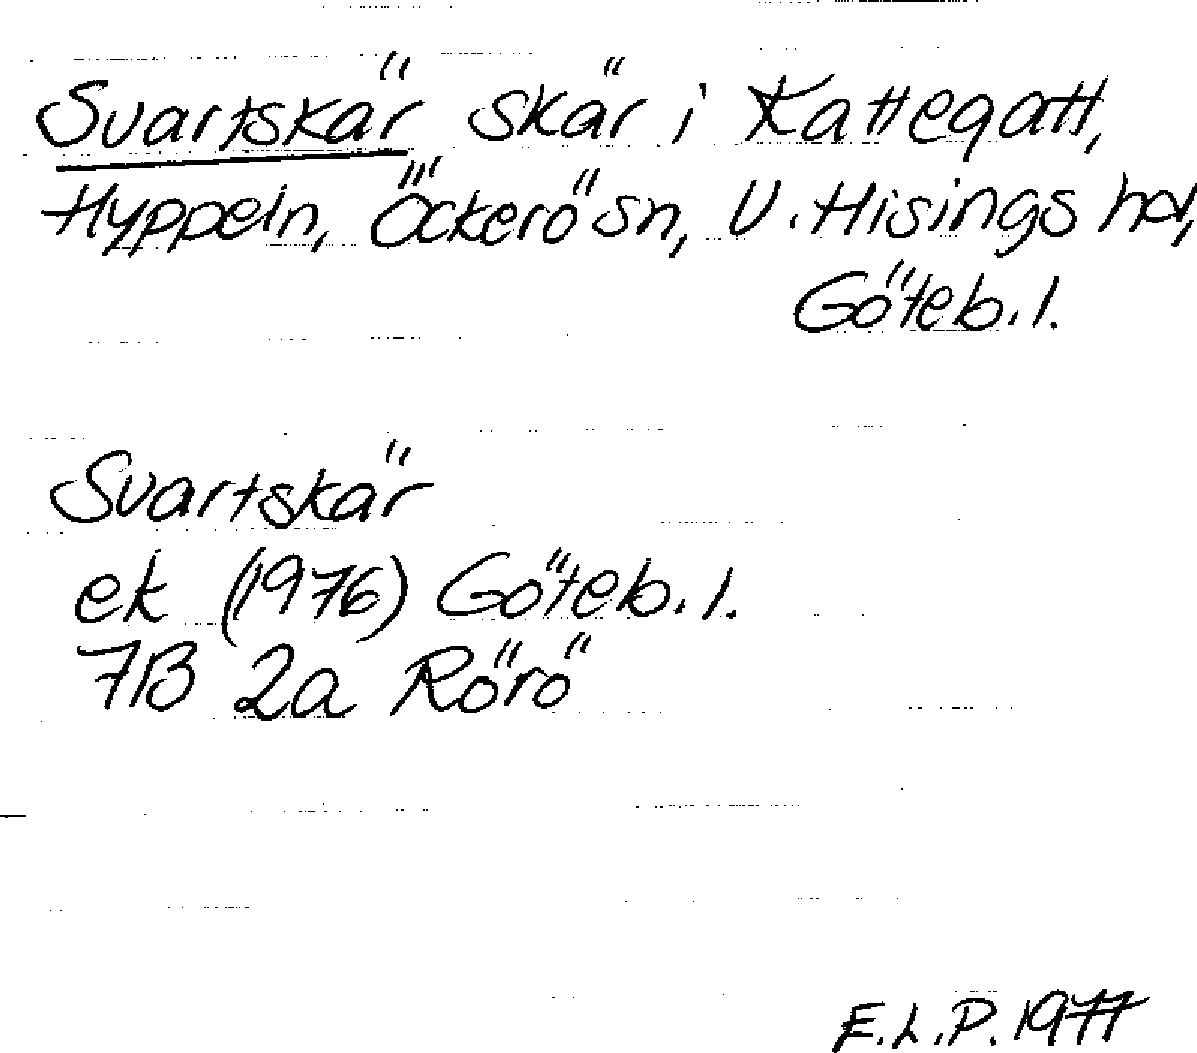 Svartskär skär i Kattegatt,
Hyppeln, Öckerö sn, V. Hisings hd,
Göteb. l.
Svartskär
ek (1976) Göteb. l.
7B 2a Rörö
E.L.P. 1977